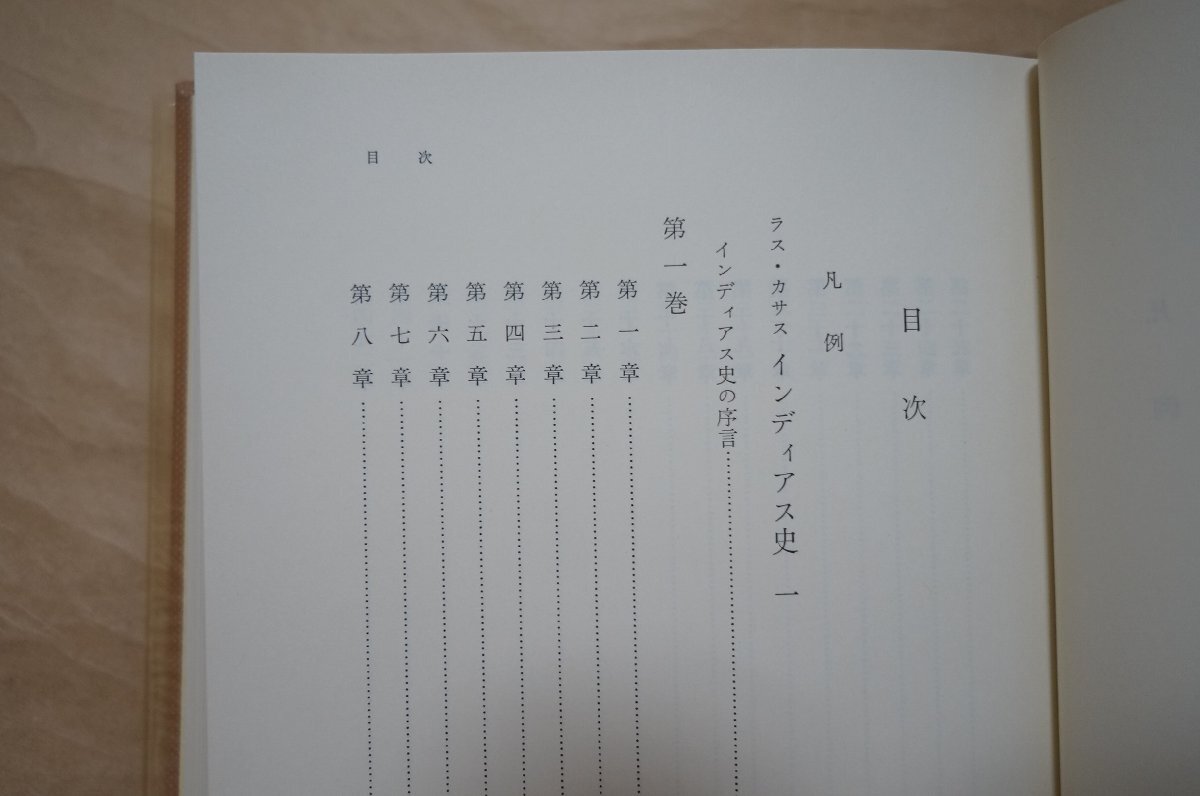 目次
目次
凡例
ラス・カサス インディアス史 一
インディアス史の序言
第一巻
第一章
第二章
第三章
第四章
第五章
第六章
第七章
第八章